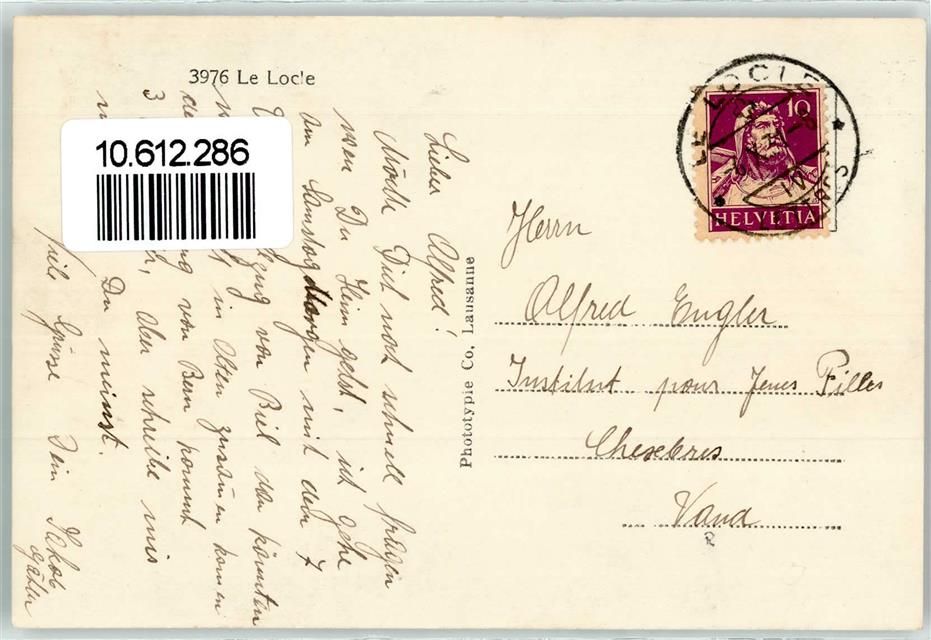 3976 Le Locle
10.612.286
Lieber Alfred!
Möchte Dich noch schnell fragen
wen Du Heim gehst, ich gehe
am Samstag Morgen mit dem 7
Zug von Biel dan könnten
in Olten zusamen komen
von Bern kommt
3 Aber schreibe mir
Du meinst.
Viele Grüsse Dein Jakob
Phototypie Co. Lausanne
LE LOCLE
10
HELVETIA
Herrn
Alfred Engler
Institut pour Jenes Filles
Chexbres
Vaud